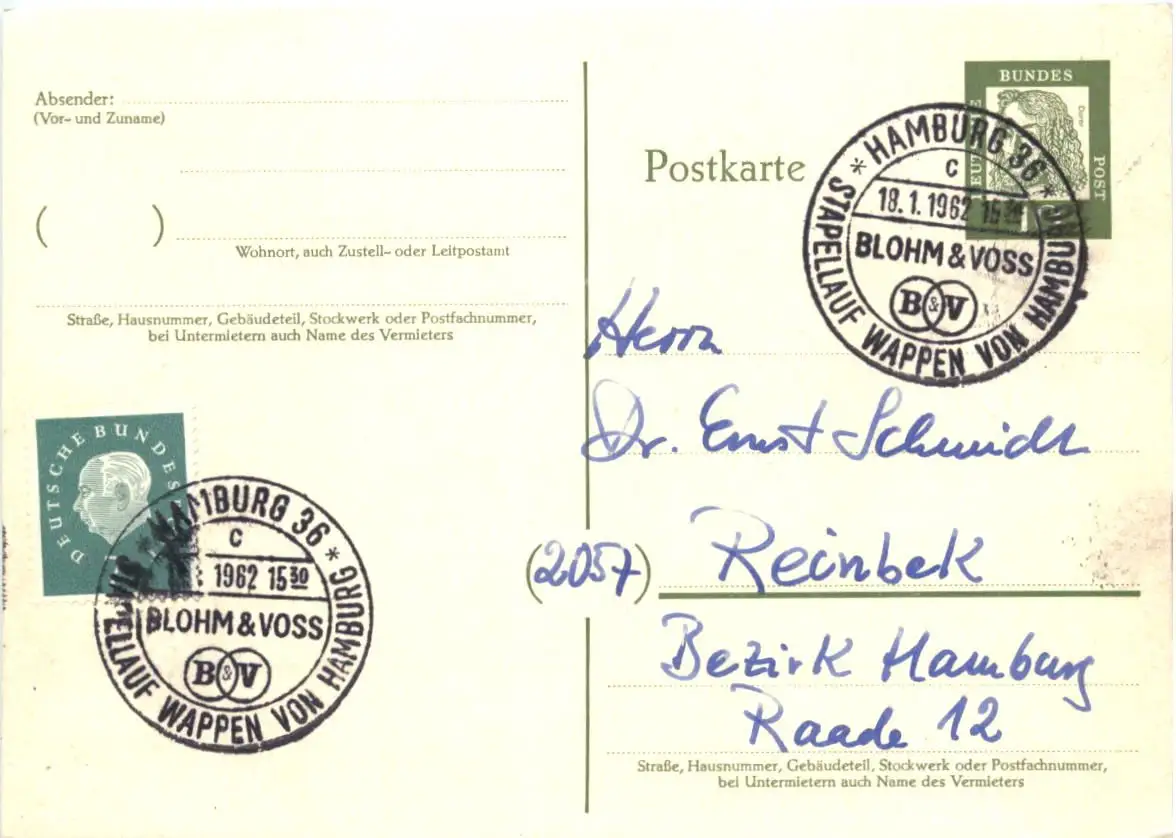 Absender:
(Vor- und Zuname)
( )
Wohnort, auch Zustell- oder Leitpostamt
Straße, Hausnummer, Gebäudeteil, Stockwerk oder Postfachnummer,
bei Untermietern auch Name des Vermieters
DEUTSCHE BUNDES
* HAMBURG 36 *
c
1962 15 30
BLOHM & VOSS
B & V
STAPELLAUF WAPPEN VON HAMBURG
Postkarte
DEUTSCHE BUNDES POST
Dürer
* HAMBURG 36 *
c
18.1.1962 15
BLOHM & VOSS
B & V
STAPELLAUF WAPPEN VON HAMBURG
Herrn
Dr. Ernst Schmidt
(2057) Reinbek
Bezirk Hamburg
Raade 12
Straße, Hausnummer, Gebäudeteil, Stockwerk oder Postfachnummer,
bei Untermietern auch Name des Vermieters